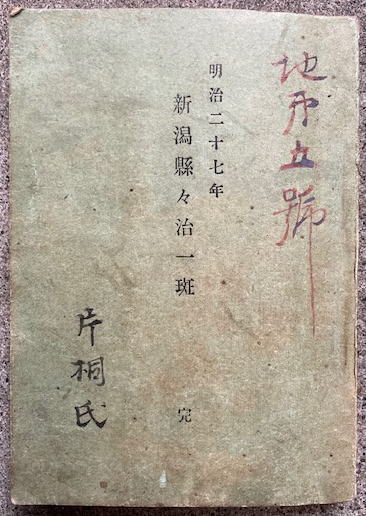 地第五號
明治二十七年
新潟縣々治一斑
完
片桐氏